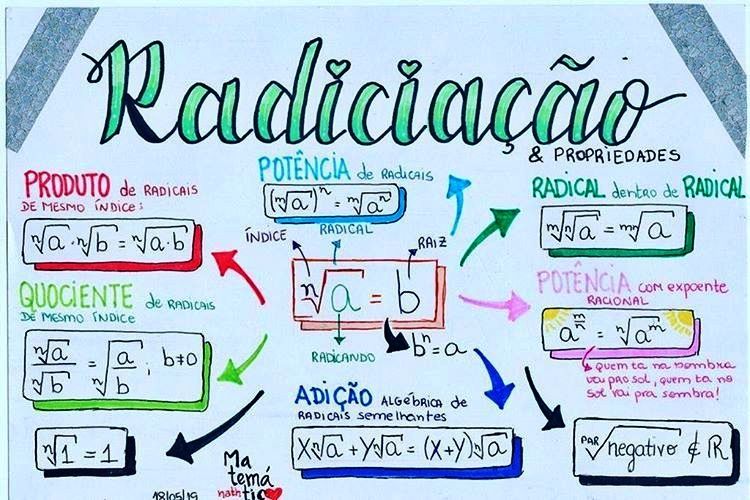 Radiciação
& PROPRIEDADES
PRODUTO de RADICAIS
DE MESMO ÍNDICE:
ⁿ√a · ⁿ√b = ⁿ√a·b
POTÊNCIA de RADICAIS
(ᵐ√a)ⁿ = ᵐ√aⁿ
RADICAL dentro de RADICAL
ᵐ√ⁿ√a = ᵐⁿ√a
ÍNDICE
RADICAL
RAIZ
ⁿ√a = b
RADICANDO
bⁿ = a
QUOCIENTE de RADICAIS
DE MESMO ÍNDICE
ⁿ√a / ⁿ√b = ⁿ√(a/b) ; b≠0
POTÊNCIA com expoente
RACIONAL
a^(m/n) = ⁿ√aᵐ
quem ta na sombra
vai pro sol, quem ta no
sol vai pra sombra!
ADIÇÃO ALGÉBRICA de
RADICAIS semelhantes
Xⁿ√a + Yⁿ√a = (X+Y)ⁿ√a
ⁿ√1 = 1
PAR√negativo ∉ ℝ
Ma
temá
tic
nath
18/05/19